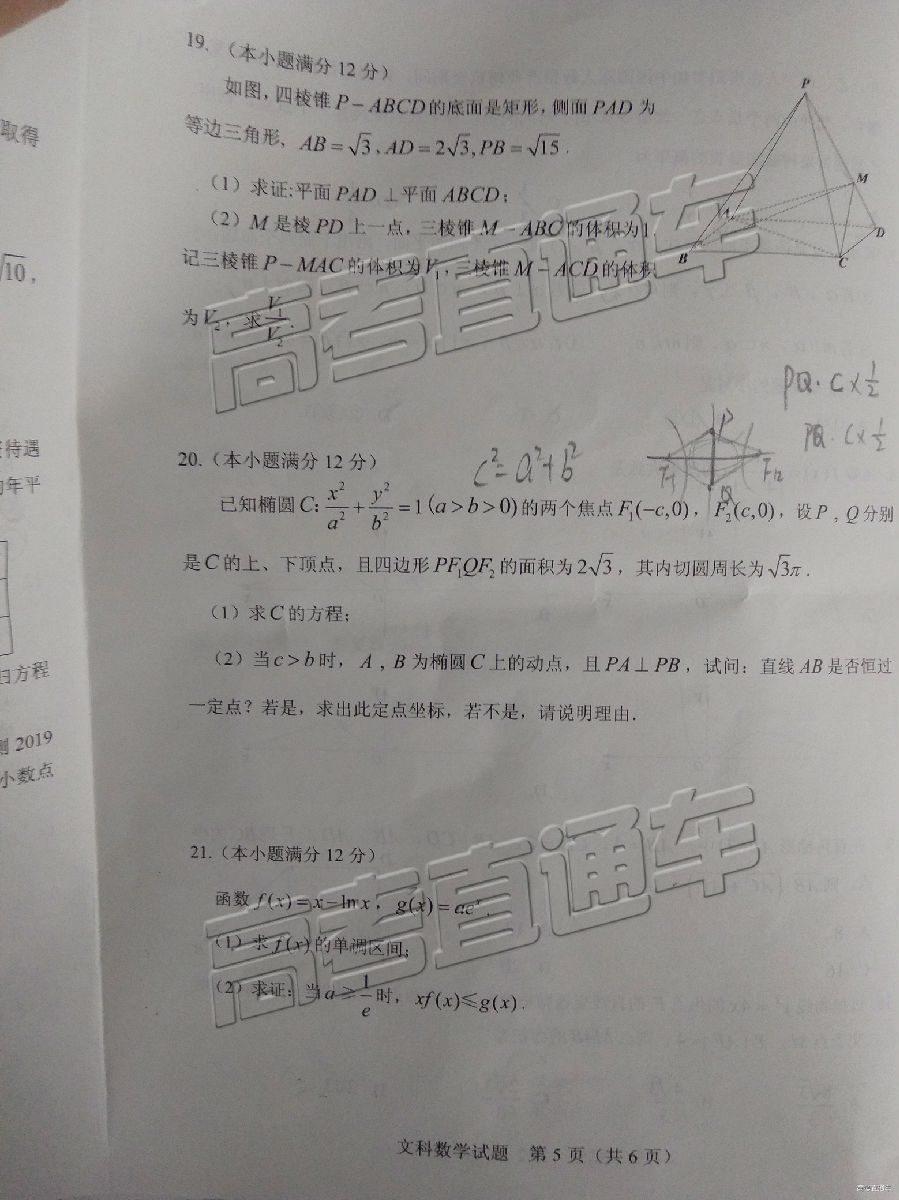 取得
√10，
待遇
年平
归方程
测 2019
小数点
19.（本小题满分 12 分）
如图，四棱锥 P－ABCD 的底面是矩形，侧面 PAD 为
等边三角形，AB＝√3，AD＝2√3，PB＝√15．
（1）求证:平面 PAD ⊥平面 ABCD；
（2）M 是棱 PD 上一点，三棱锥 M－ABC 的体积为 1．
记三棱锥 P－MAC 的体积为 V₁，三棱锥 M－ACD 的体积
为 V₂，求 V₁/V₂．
P
M
A
D
B
C
PQ·C×1/2
PQ·C×1/2
c²=a²+b²
P
F1
F2
Q
20.（本小题满分 12 分）
已知椭圆 C: x²/a²＋y²/b²＝1 (a＞b＞0) 的两个焦点 F₁(−c,0)，F₂(c,0)，设 P，Q 分别
是 C 的上、下顶点，且四边形 PF₁QF₂ 的面积为 2√3，其内切圆周长为 √3π．
（1）求 C 的方程；
（2）当 c＞b 时，A，B 为椭圆 C 上的动点，且 PA⊥PB，试问：直线 AB 是否恒过
一定点？若是，求出此定点坐标，若不是，请说明理由．
21.（本小题满分 12 分）
函数 f(x)＝x－ln x，g(x)＝aeˣ．
（1）求 f(x) 的单调区间；
（2）求证：当 a≥1/e 时，xf(x)≤g(x)．
高考直通车
高考直通车
文科数学试题 第 5 页（共 6 页）